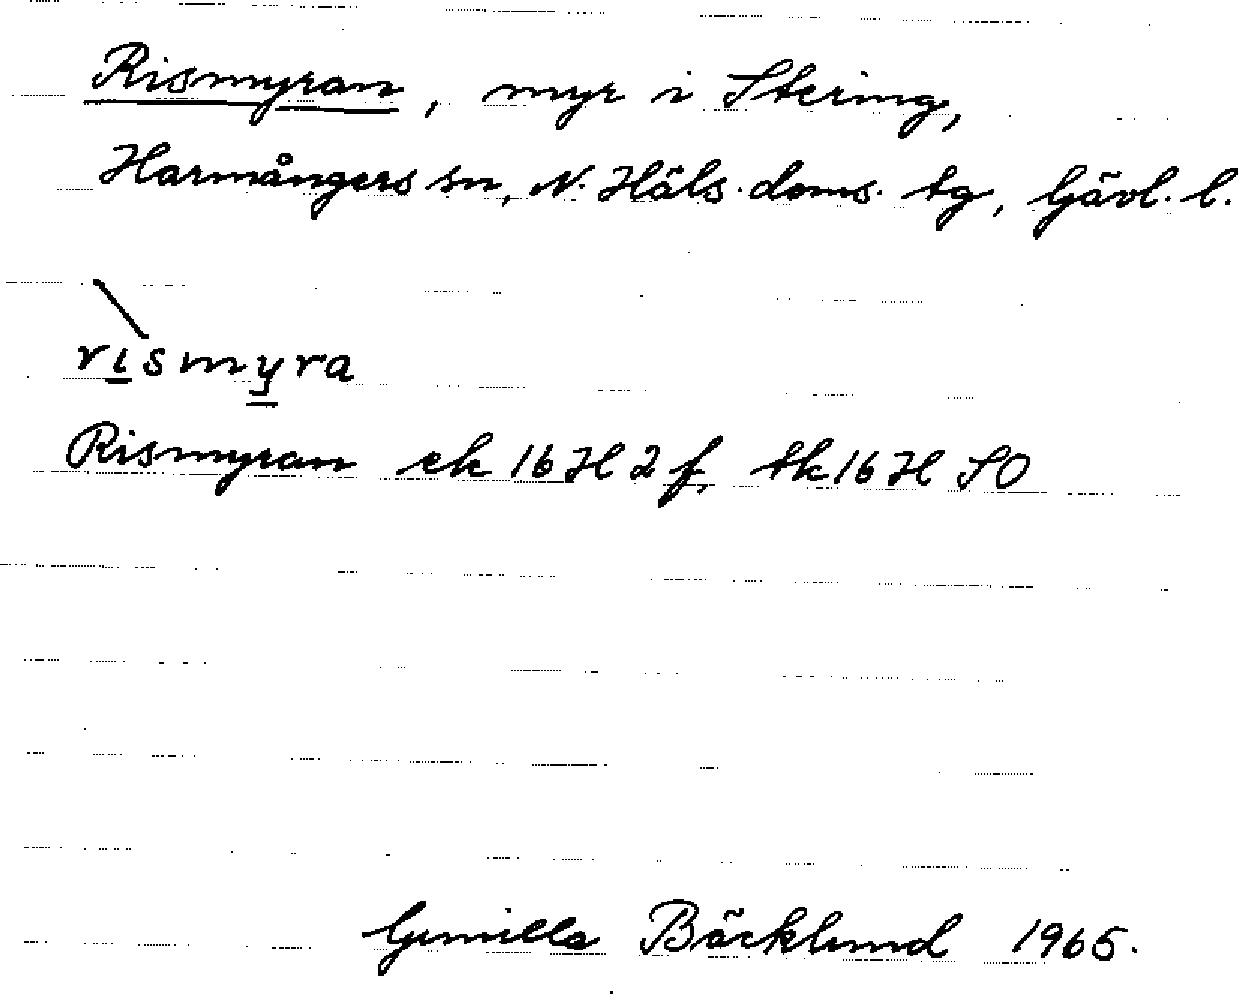 Rismyran, myr i Stering,
Harmångers sn, N. Häls. doms. tg, Gävl. l.
rismyra
Rismyran ek 16H 2f, tk 16H SO
Gunilla Bäcklund 1965.